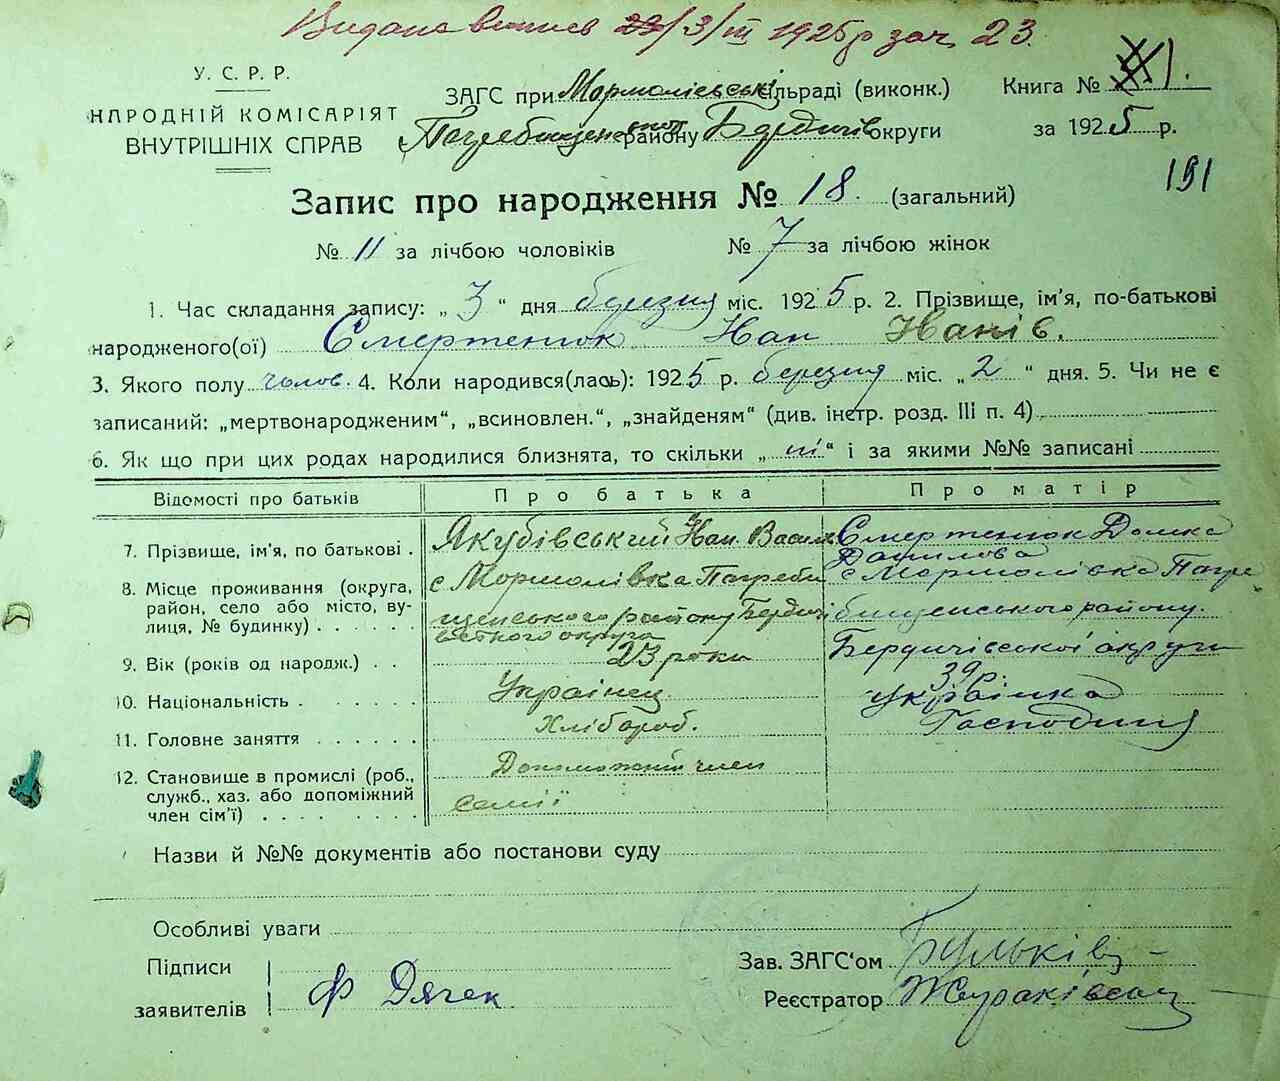 Видана випись 23/3/III 1925р зач. 23.
У. С. Р. Р.
НАРОДНІЙ КОМІСАРІЯТ
ВНУТРІШНІХ СПРАВ
ЗАГС при Мормолієвські сільраді (виконк.)
Погребищенського району Бердичів округи
Книга № 1.
за 1925 р.
191
Запис про народження № 18. (загальний)
№ 11 за лічбою чоловіків № 7 за лічбою жінок
1. Час складання запису: „ 3 “ дня березня міс. 1925 р. 2. Прізвище, ім'я, по-батькові
народженого(ої) Смертенюк Иван Іванів.
3. Якого полу чолов. 4. Коли народився(лась): 1925 р. березня міс. „ 2 “ дня. 5. Чи не є
записаний: „мертвонародженим“, „всиновлен.“, „знайденям“ (див. інстр. розд. III п. 4)
6. Як що при цих родах народилися близнята, то скільки „ ні “ і за якими №№ записані
Відомості про батьків Про батька Про матір
7. Прізвище, ім'я, по батькові . Якубівський Иван. Васил Смертенюк Домка
Данилова
8. Місце проживання (округа, район, село або місто, вулиця, № будинку) . . . . . .
с Мормолівка Погреби
щенського району Бердичі
вського округа
с Мормолівка Погре
бищенського району.
Бердичівської округи
9. Вік (років од народж.) . . 23 роки 39р.
10. Національність . . . . . . Українец українка
11. Головне заняття . . . . . . Хлібороб. Господиня
12. Становище в промислі (роб., служб., хаз. або допоміжний член сім'ї) . . . . . . . .
Допоможній член
семії
Назви й №№ документів або постанови суду
Особливі уваги
Підписи
заявителів
Ф Дячек
Зав. ЗАГС‘ом Бульків
Реєстратор Жураківськ